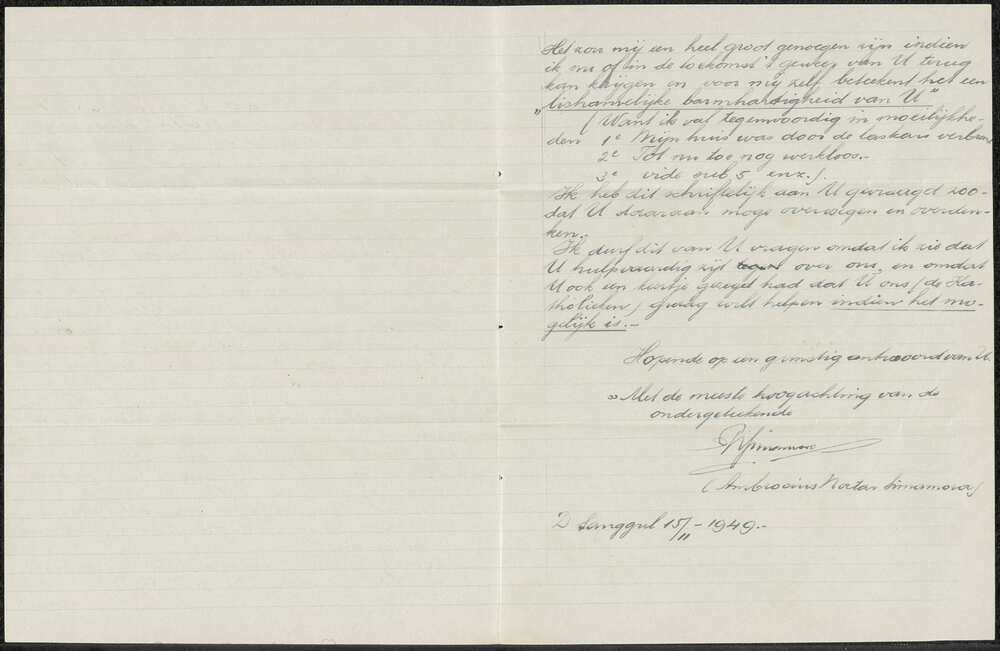 Het zou mij een heel groot genoegen zijn indien
ik nu of in de toekomst 'n geweer van U terug
kan krijgen en voor mij zelf beteekent het een
„lishamelijke barmhardigheid van U"
(Want ik val tegenwoordig in moeilijkhe-
den 1e Mijn huis was door de laskars verbran
2e Tot nu toe nog werkloos.-
3e vide sub 5 enz.)
Ik heb dit schriftelijk aan U gevraagd zoo-
dat U daaraan moge overwegen en overden-
ken.
Ik durf dit van U vragen omdat ik zie dat
U hulpvaardig zijt over ons, en omdat
U ook een kaartje gezegd had dat U ons (de Ka-
tholieken) graag wilt helpen indien het mo-
gelijk is.-
Hopende op een gunstig antwoord van U.
Met de meeste hoogachting van de
ondergeteekende
(Ambrosius Simamora)
D Sanggul 15/11-1949.-